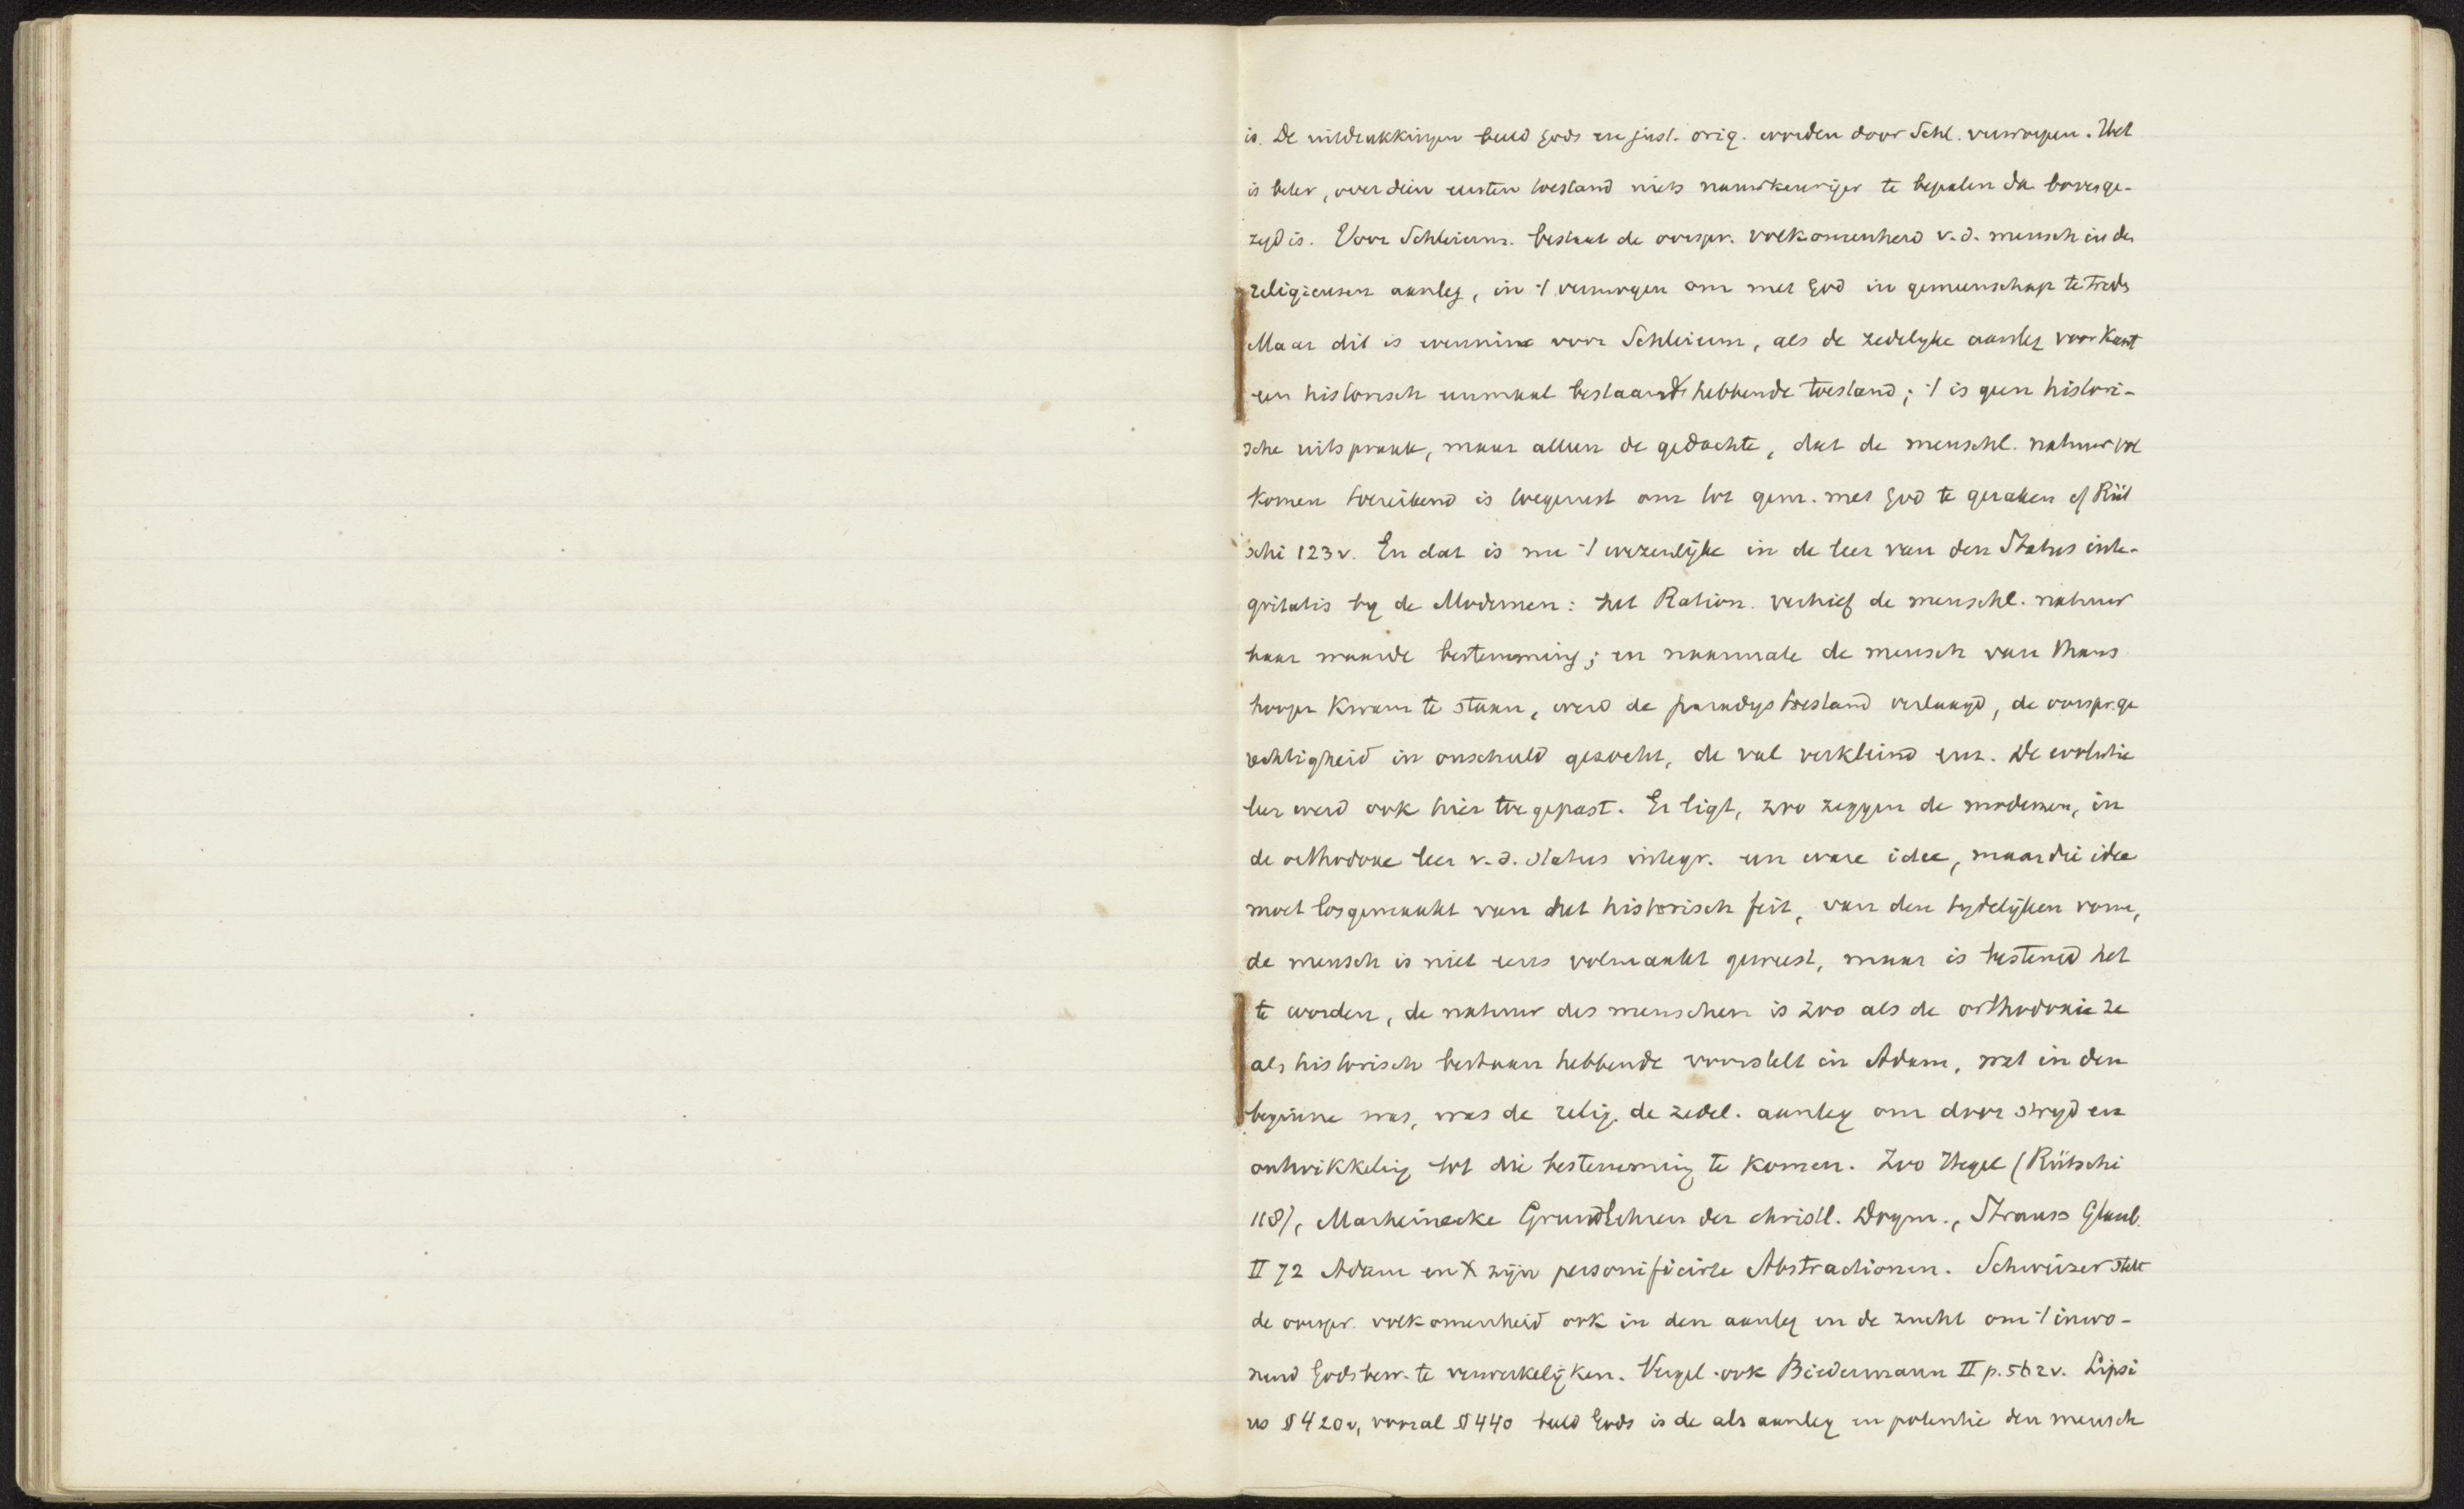 is. De uitdrukkingen beeld Gods en just. orig. worden door Schl. verworpen. Het
is beter, over dien eersten toestand niets nauwkeuriger te bepalen da bovenge-
zegd is. Voor Schleierm. bestaat de oorspr. volkomenheid v.d. mensch in de
religieusen aanleg, in 't vermogen om met God in gemeenschap te treden
Maar dit is evenmin voor Schleierm, als de zedelyke aanleg voor Kant
een historisch eenmaal bestaand hebbende toestand; 't is geen histori-
sche uitspraak, maar alleen de gedachte, dat de menschl. natuur vol
komen toereikend is toegerust om tot gem. met God te geraken cf Rüt
schi 123v. En dat is nu 't wezenlijke in de leer van den Status inte-
gritatis by de Modernen: het Ration. verhief de menschl. natuur
haar waarde bestemming; en naarmate de mensch van thans
hooger kwam te staan, werd de paradystoestand verlaagd, de oorspr. ge
rechtigheid in onschuld gezocht, de val verkleind enz. De evolutie
leer werd ook hier toegepast. Er ligt, zoo zeggen de modernen, in
de orthodoxe leer v.d. status integr. een ware idee, maar die idee
moet losgemaakt van het historisch feit, van den tydelijken vorm,
de mensch is niet eens volmaakt geweest, maar is bestemd het
te worden, de natuur des menschen is zoo als de orthodoxie ze
als historisch bestaan hebbende voorstelt in Adam, wat in den
beginne was, was de relig. de zedel. aanleg om door stryd en
ontwikkeling tot die bestemming te komen. Zoo Hegel (Rütschi
118), Marheinecke Grundlehren der christl. Dogm., Strauss Glaub.
II 72 Adam en X zijn personificirte Abstractionen. Schweizer stelt
de oorspr. volkomenheid ook in den aanleg en de zucht om 't inwo-
nend Godsbew. te verwerkelijken. Vergel. ook Biedermann II p. 562v. Lipsi
us § 420v, vooral § 440 beeld Gods is de als aanleg en potentie den mensch